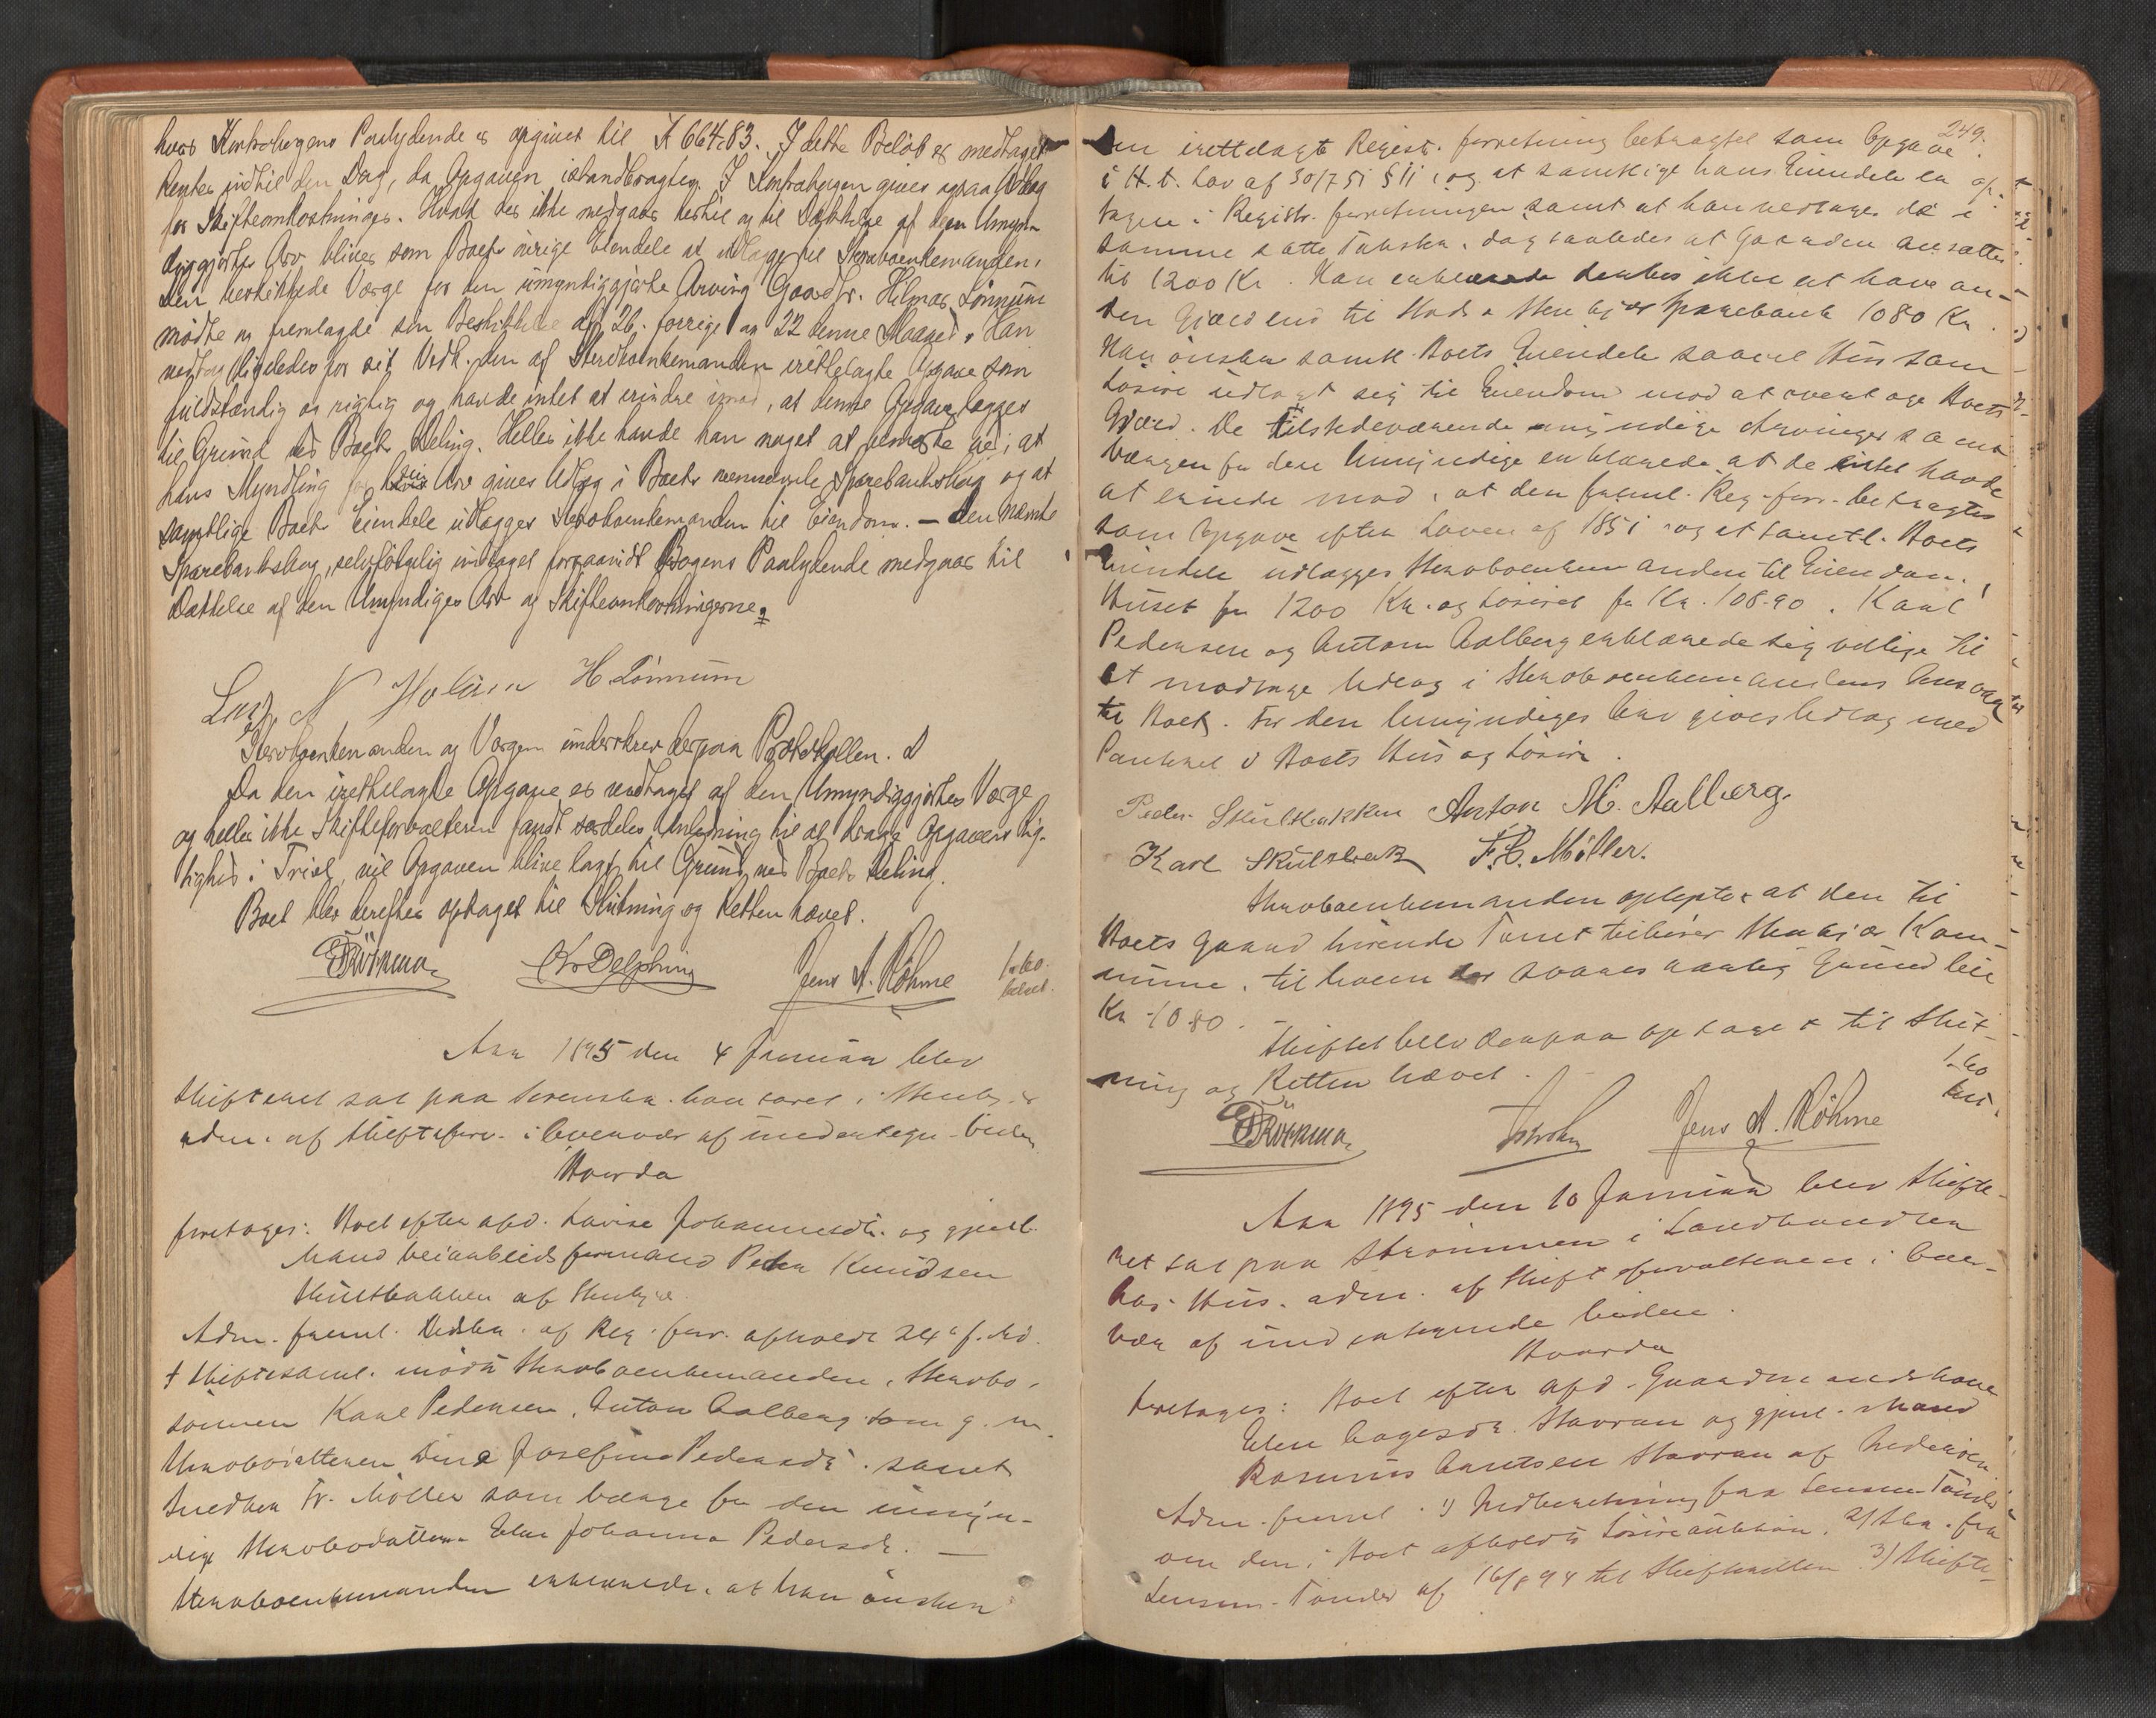 hvors Kontrabogens Paalydende er opgivet til K 664.83. I dette Beløb er medtaget
Renter indtil den Dag, da Opgaven istandbragtes. I Kontrabogen gives ogsaa Udlæg
for Skifteomkostninger. Hvad der ikke medgaar hertil og til Dækkelse af den Umyn-
diggjortes Arv bliver som Boets øvrige Eiendele at udlægge til Stervboenkemanden.
Den beskikkede Værge for den umyndiggjorte Arving Gaardbr. Hilmar Lønnum
mødte og fremlagde sin Beskikkelse af 26. forrige og 22 denne Maaned. Han
vedtog ligeledes for sit Vedk. den af Stervboenkemanden irettelagte Opgave som
fuldstændig og rigtig og havde intet at erindre imod, at denne Opgave lægges
til Grund ved Boets Deling. Heller ikke havde han noget at bemærke ved, at
hans Myndling for sin Arv gives Udlæg i Boets nævnte Sparebanksbog og at
samtlige Boets Eiendele udlægges Stervboenkemanden til Eiendom. – den nævnte
Sparebanksbog, selvfølgelig undtaget forsaavidt Bogens Paalydende medgaar til
Dækkelse af den Umyndiges Arv og Skifteomkostningerne.
N Holmen H. Lønnum
Stervboenkemanden og Værgen underskrev derpaa Protokollen.
Da den irettelagte Opgave er vedtaget af den Umyndiggjortes Værge
og heller ikke Skifteforvalteren fandt særdeles Anledning til at drage Opgavens Rig-
tighed i Tvivl, vil Opgaven blive lagt til Grund ved Boets Deling.
Boet blev derefter optaget til Slutning og Retten hævet.
Kr Delphin Jens A. Röhme 1-60
betalt.
Aar 1895 den 4 Januar blev
Skifteret sat paa Sorenskr. kontoret i Stenkj.
adm. af Skifteforv. i Overvær af undertegn. Vidner
Hvorda
foretoges: Boet efter afd. Lovise Johannesdr. og gjenl.
Mand Veiarbeidsformand Peder Knudsen
Skulstbakken af Stenkjær.
Adm. freml. Udskr. af Reg. forr. afholdt 24 f. Md.
I Skiftesaml. mødte Stervboenkemanden, Stervbo-
sønnen Karl Pedersen, Anton Aalberg som g. m.
Stervbodatteren Dina Josefine Pedersdr. samt
Snedker Fr. Møller som Værge for den umyn-
dige Stervbodatter Elen Johanna Pedersdr. –
Stervboenkemanden erklærede, at han ønsker
249.
den irettelagte Regist. forretning betragtet som Opgave
i H. t. Lov af 30/7 51 § 11, og at samtlige hans Eiendele er op-
tagne i Registr. forretningen samt at han vedtager de i
samme satte Takster, dog saaledes at Gaarden ansættes
til 1200 Kr. Han erklærede derhos ikke at have an-
den Gjæld end til Stods & Stenkjær Sparebank 1080 Kr.
Han ønsker samtl. Boets Eiendele saavel Hus som
Løsøre udlagt sig til Eiendom mod at overtage Boets
Gjæld. De tilstedeværende myndige Arvinger samt
Værgen for den Umyndige erklærede at de intet havde
at erindre mod, at den freml. Reg-forr. betragtes
som Opgave efter Loven af 1851 og at samtl. Boets
Eiendele udlægges Stervboenkemanden til Eiendom,
Huset for 1200 Kr. og Løsøret for Kr. 108-90. Karl
Pedersen og Anton Aalberg erklærede sig villige til
at modtage Udlæg i Stervboenkemandens Ansvar
til Boet. For den Umyndiges Arv gives Udlæg med
Panteret i Boets Hus og Løsøre.
Peder Skulstbakken Anton M. Aalberg.
Karl Skulstbak F. C. Møller.
Stervboenkemanden oplyste, at den til
Boets Gaard hørende Tomt tilhører Stenkjær Kom-
mune, til hvem der svares aarlig Grundleie
Kr 10-80.
Skiftet blev derpaa optaget til Slut-
ning og Retten hævet.
1-60
bet.
Jens A. Röhme
Aar 1895 den 10 Januar blev Skifte-
ret sat paa Strømmen i Landhandler
Hus. adm. af Skifteforvalteren i Over-
vær af undertegnede Vidner.
Hvorda
foretoges: Boet efter afd. Gaardmandskone
Elen Aagesdr. Stavran og gjenl. Mand
Rasmus Arntsen Stavran af
Adm. freml. 1) Indberetning fra Lensm. Tønder
om den i Boet afholdte Løsøreauktion. 2) Skr. fra
Lensm. Tønder af 16/8 94 til Skifteretten 3) Skifte-